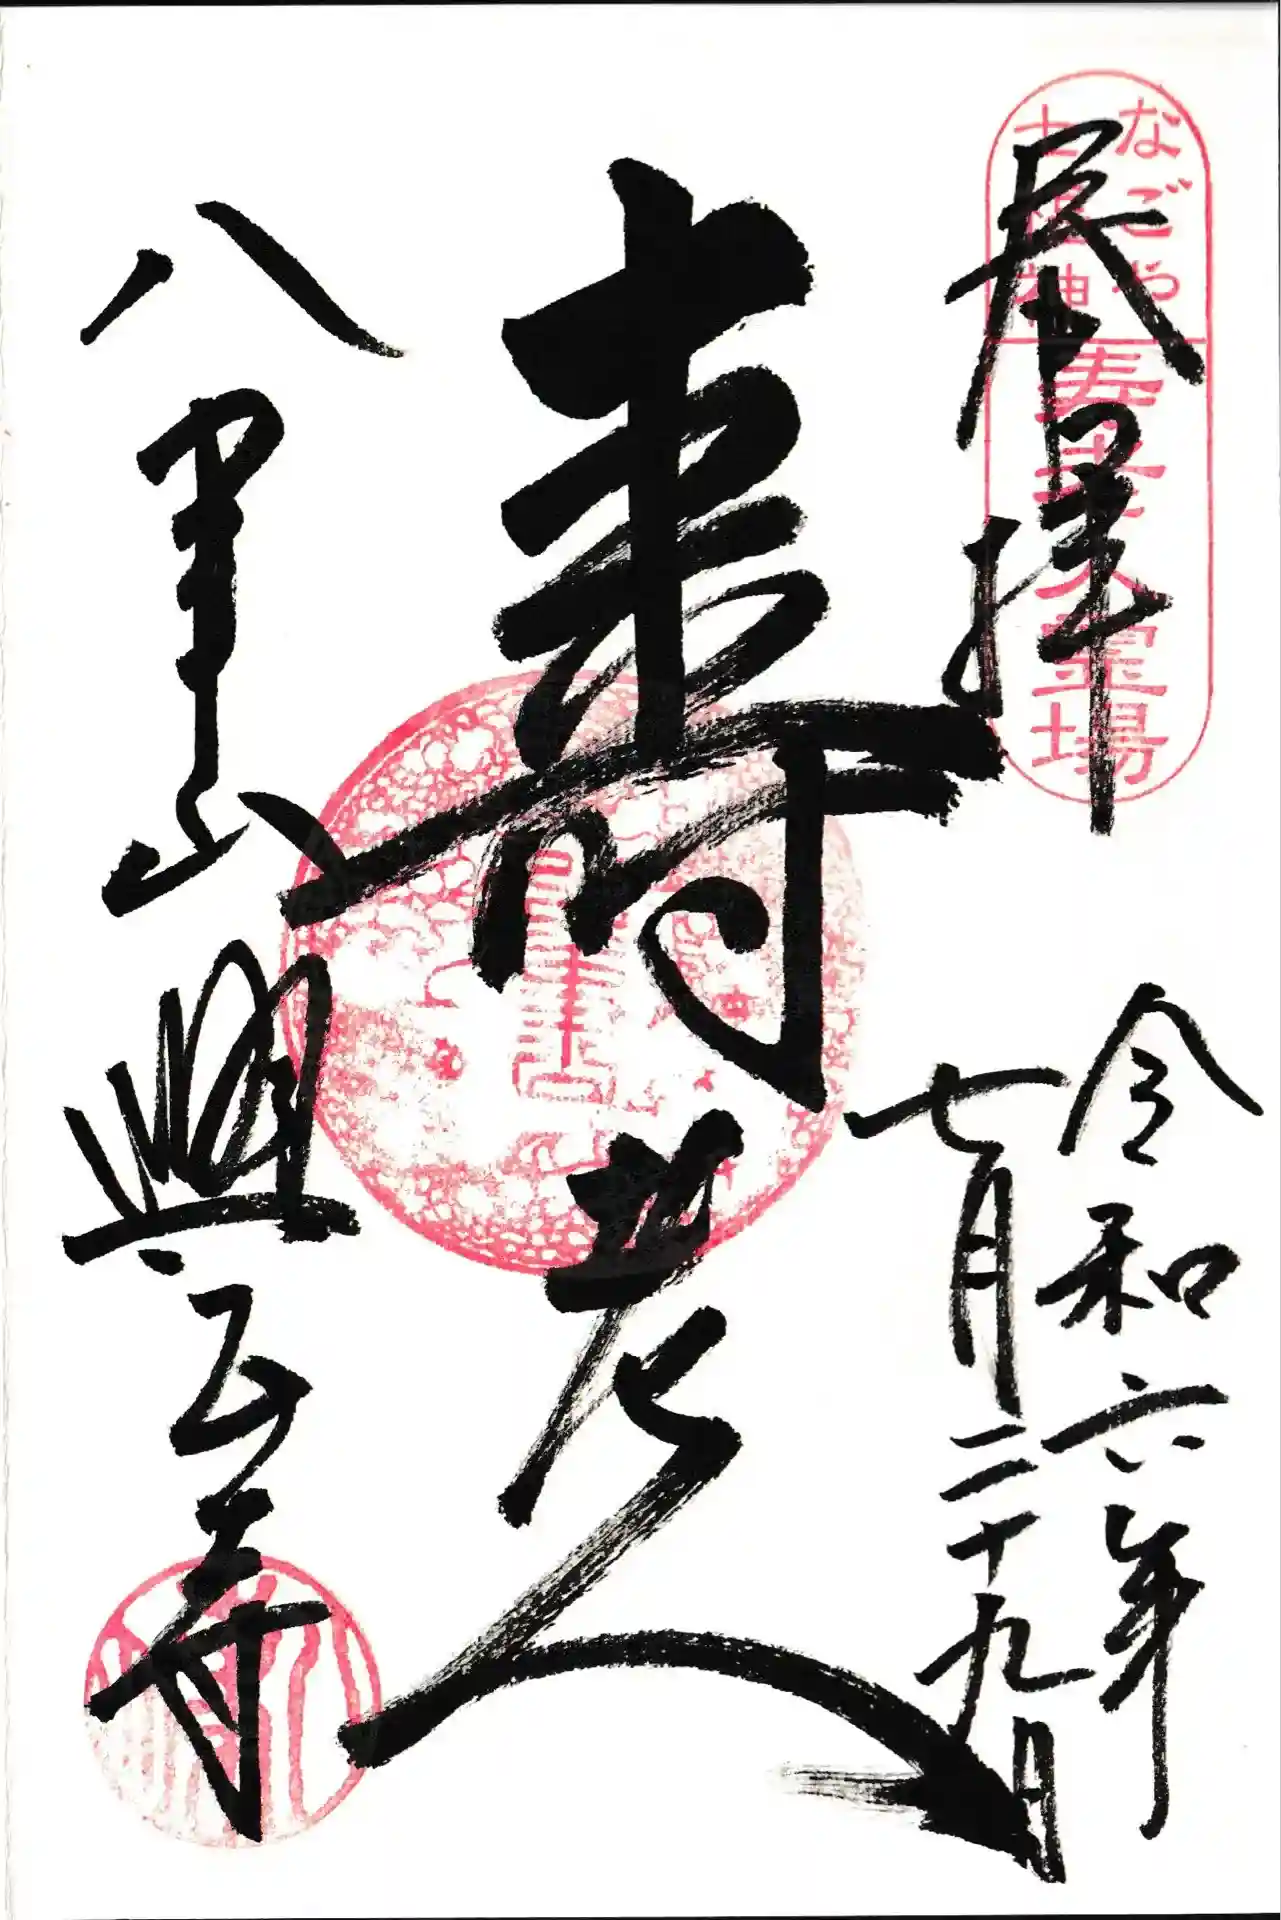 なごや
七福神
寿老人霊場
奉拝
令和六年
七月二十九日
壽老人
八事山興正寺